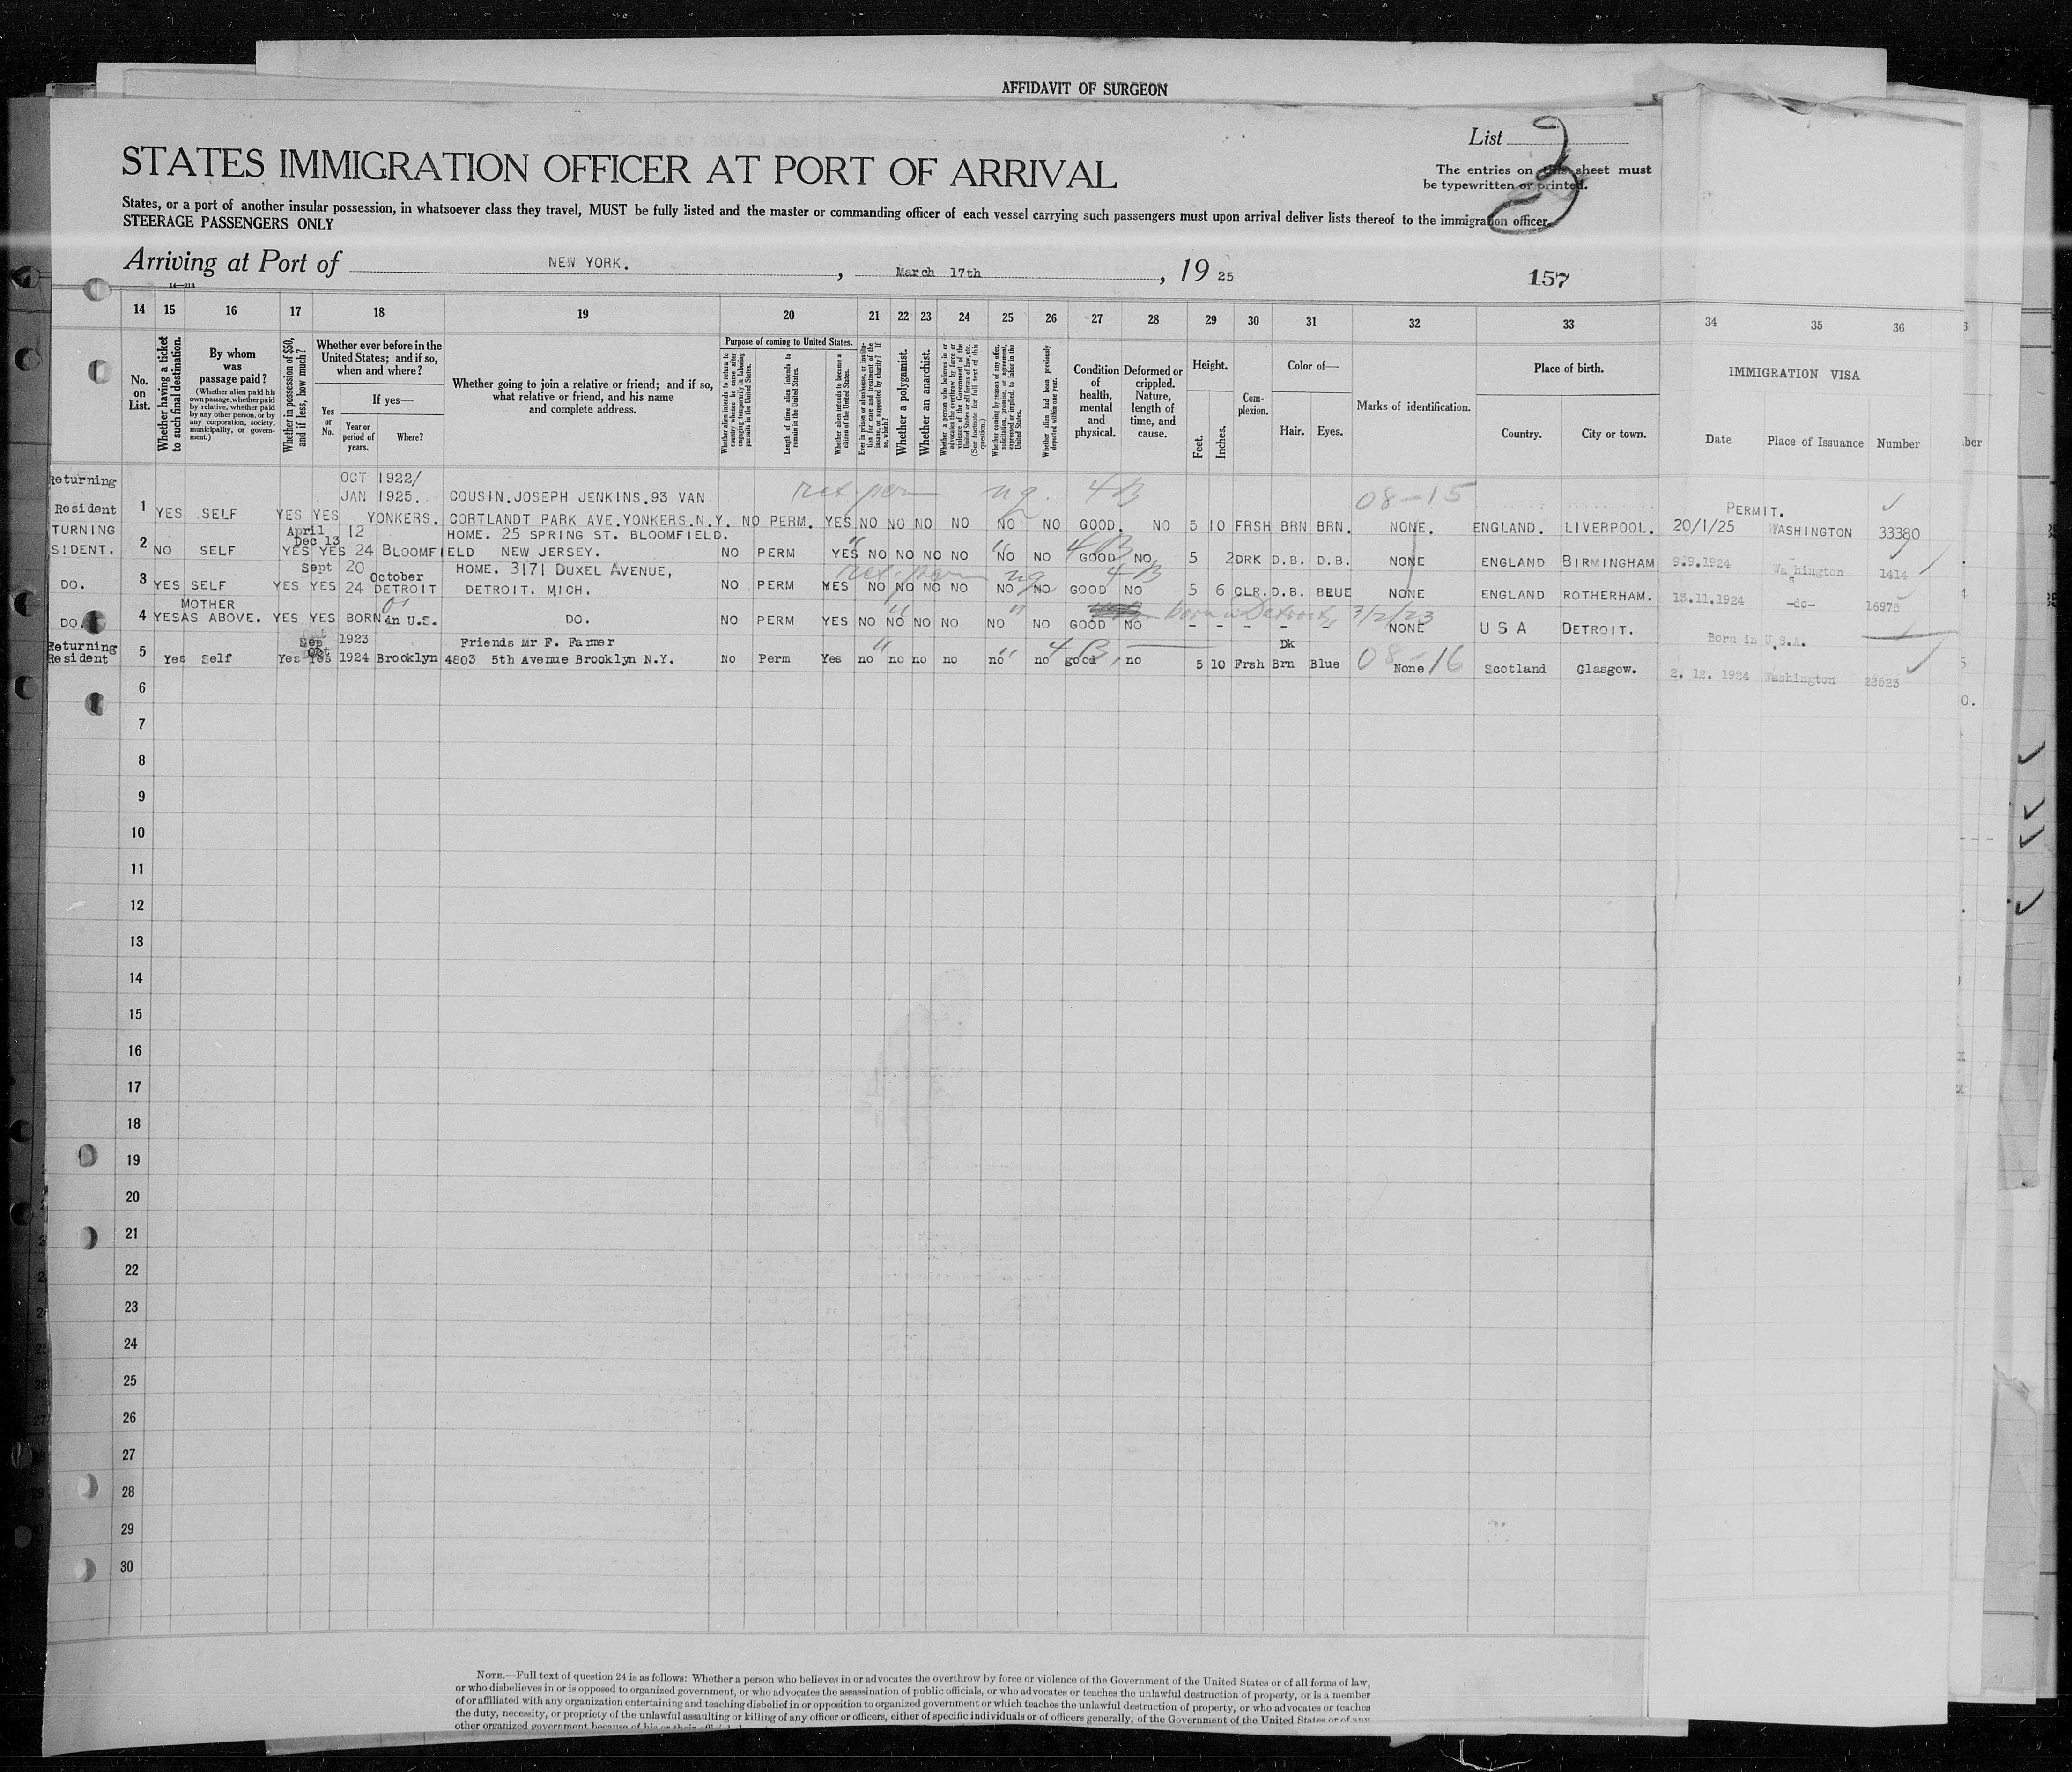 AFFIDAVIT OF SURGEON
List 2
The entries on this sheet must
be typewritten or printed.
STATES IMMIGRATION OFFICER AT PORT OF ARRIVAL
States, or a port of another insular possession, in whatsoever class they travel, MUST be fully listed and the master or commanding officer of each vessel carrying such passengers must upon arrival deliver lists thereof to the immigration officer.
STEERAGE PASSENGERS ONLY
Arriving at Port of NEW YORK. , March 17th , 19 25
157
14—213
14 15 16 17 18 19 20 21 22 23 24 25 26 27 28 29 30 31 32 33 34 35 36
No. on List.
Whether having a ticket to such final destination.
By whom was passage paid?
(Whether alien paid his own passage, whether paid by relative, whether paid by any other person, or by any corporation, society, municipality, or government.)
Whether in possession of $50, and if less, how much?
Whether ever before in the United States; and if so, when and where?
Yes or No.
If yes—
Year or period of years.
Where?
Whether going to join a relative or friend; and if so, what relative or friend, and his name and complete address.
Purpose of coming to United States.
Whether alien intends to return to country whence he came after engaging temporarily in laboring pursuits in the United States.
Length of time alien intends to remain in the United States.
Whether alien intends to become a citizen of the United States.
Ever in prison or almshouse, or institution for care and treatment of the insane, or supported by charity? If so, which?
Whether a polygamist.
Whether an anarchist.
Whether a person who believes in or advocates the overthrow by force or violence of the Government of the United States or all forms of law, etc. (See footnote for full text of this question.)
Whether coming by reason of any offer, solicitation, promise, or agreement, expressed or implied, to labor in the United States.
Whether alien had been previously deported within one year.
Condition of health, mental and physical.
Deformed or crippled. Nature, length of time, and cause.
Height.
Feet. Inches.
Complexion.
Color of—
Hair. Eyes.
Marks of identification.
Place of birth.
Country. City or town.
IMMIGRATION VISA
Date Place of Issuance Number
Returning OCT 1922/
JAN 1925. COUSIN.JOSEPH JENKINS.93 VAN ret perm 4B 08-15 PERMIT.
Resident 1 YES SELF YES YES YONKERS. CORTLANDT PARK AVE.YONKERS.N.Y. NO PERM. YES NO NO NO NO NO NO GOOD. NO 5 10 FRSH BRN BRN. NONE. ENGLAND. LIVERPOOL. 20/1/25 WASHINGTON 33380
TURNING April 12 HOME. 25 SPRING ST. BLOOMFIELD.
Dec 13
SIDENT. 2 NO SELF YES YES 24 BLOOMFIELD NEW JERSEY. NO PERM YES NO NO NO NO NO NO 4B GOOD NO 5 2 DRK D.B. D.B. NONE ENGLAND BIRMINGHAM 9.9.1924 Washington 1414
Sept 20 October HOME. 3171 DUXEL AVENUE, ret perm 4B
DO. 3 YES SELF YES YES 24 DETROIT DETROIT. MICH. NO PERM YES NO NO NO NO NO NO GOOD NO 5 6 CLR. D.B. BLUE NONE ENGLAND ROTHERHAM. 13.11.1924 -do- 16975
MOTHER born in Detroit, 3/2/23
DO. 4 YES AS ABOVE. YES YES BORN in U.S. DO. NO PERM YES NO NO NO NO NO NO GOOD NO - - - - - NONE U S A DETROIT. Born in U.S.A.
Returning Sep 1923 Friends Mr F. Farmer 4B Dk 08-16
Resident 5 Yes Self Yes Yes Oct 1924 Brooklyn 4803 5th Avenue Brooklyn N.Y. No Perm Yes no no no no no no good no 5 10 Frsh Brn Blue None Scotland Glasgow. 2. 12. 1924 Washington 22523
6
7
8
9
10
11
12
13
14
15
16
17
18
19
20
21
22
23
24
25
26
27
28
29
30
NOTE.—Full text of question 24 is as follows: Whether a person who believes in or advocates the overthrow by force or violence of the Government of the United States or of all forms of law,
or who disbelieves in or is opposed to organized government, or who advocates the assassination of public officials, or who advocates or teaches the unlawful destruction of property, or is a member
of or affiliated with any organization entertaining and teaching disbelief in or opposition to organized government or which teaches the unlawful destruction of property, or who advocates or teaches
the duty, necessity, or propriety of the unlawful assaulting or killing of any officer or officers, either of specific individuals or of officers generally, of the Government of the United States or of any
other organized government because of his or their